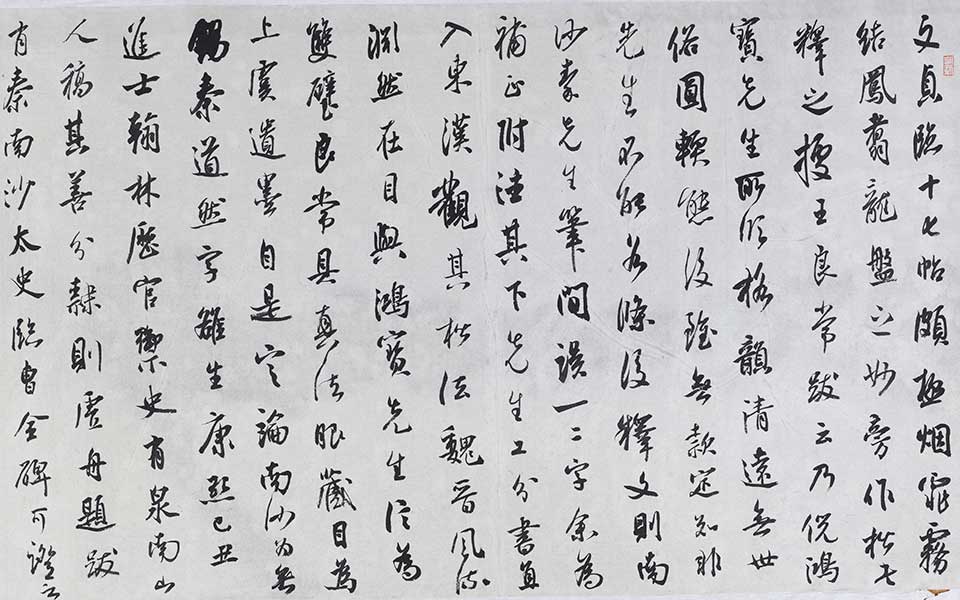 文貞臨十七帖頗極烟霏霧
結鳳翥龍盤之妙旁作楷七
釋之搜王良常跋云乃倪鴻
寶先生所臨格韻清遠無世
俗圓輭態後雖無款定知非
先生不能為條後釋文則南
沙秦先生筆間誤一二字余為
補正附注其下先生工分書直
入東漢觀其楷法魏晉風流
淵然在目與鴻寶先生信為
雙璧良常具真法眼藏目為
上虞遺墨自是定論南沙為無
錫秦道然字雒生康熙己丑
進士翰林歷官禦史有泉南山
人稿其善分隸則虛舟題跋
有秦南沙太史臨曹全碑可證云